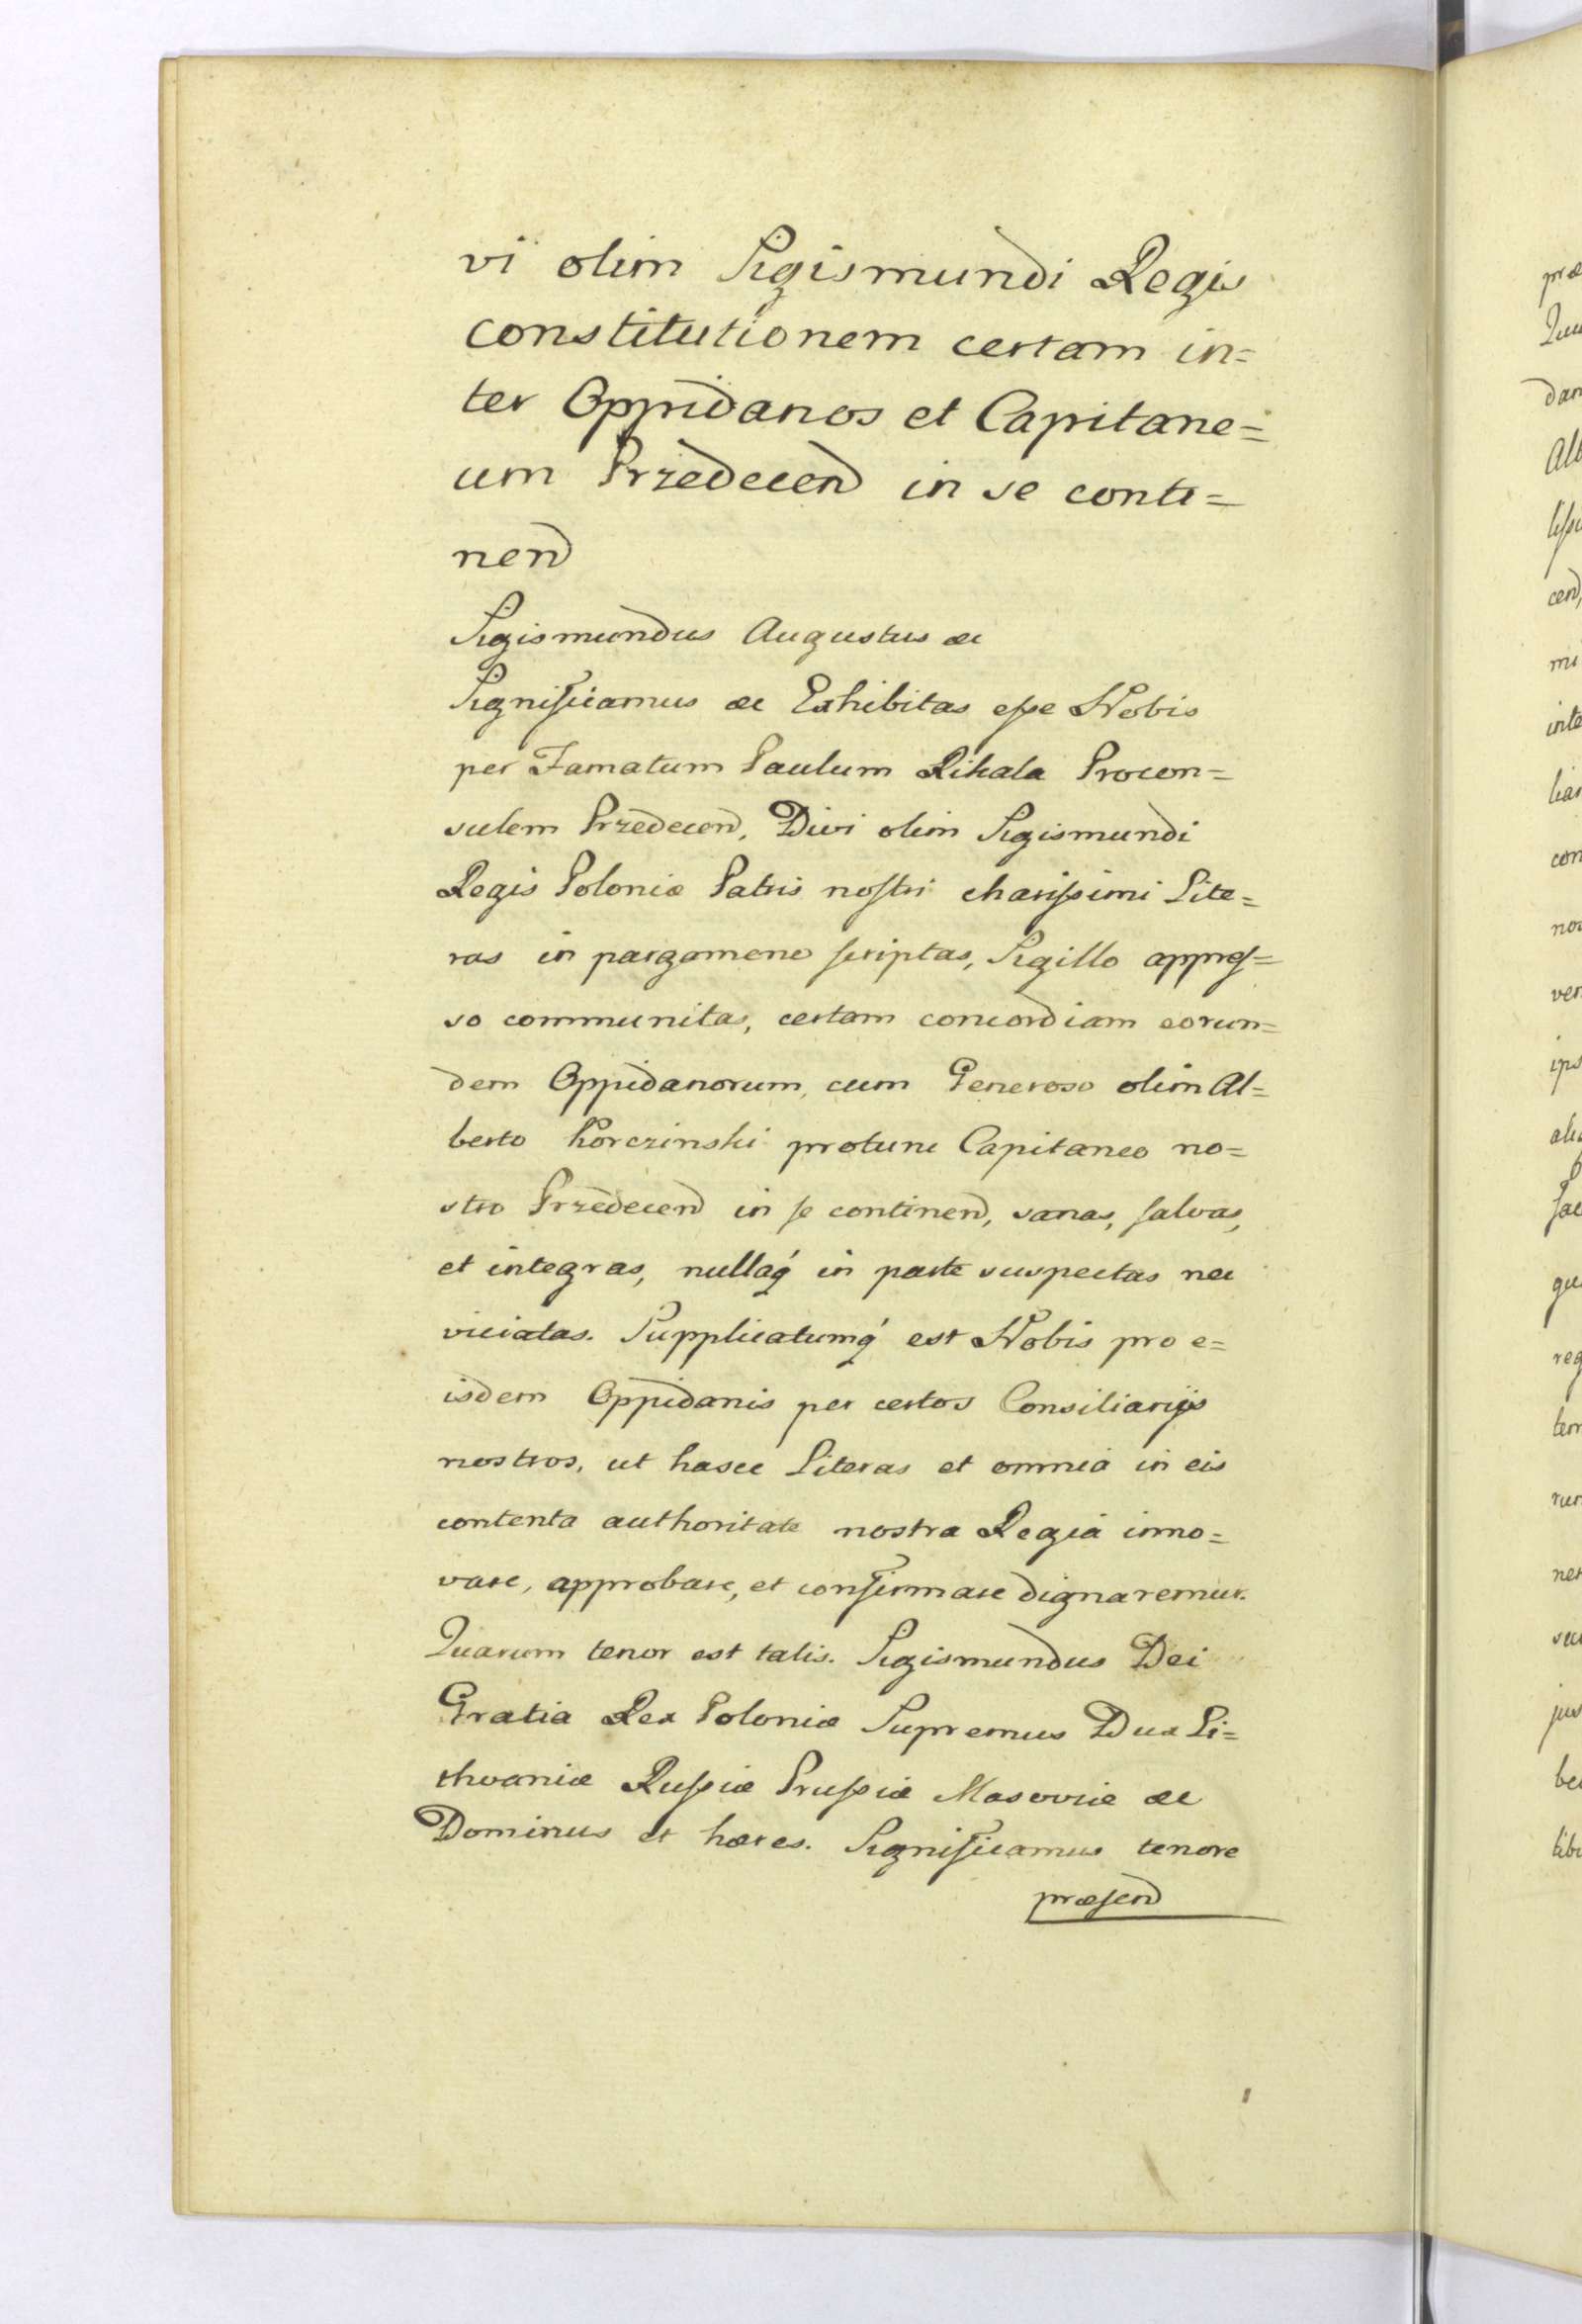 vi olim Sigismundi Regis
constitutionem certam in=
ter Oppidanos et Capitane=
um Przedecen̄ in se conti=
nen̄
Sigismundus Augustus &c
Significamus &c Exhibitas eſse Nobis
per Famatum Paulum Rikala Procon=
sulem Przedecen̄, Divi olim Sigismundi
Regis Poloniæ Patris noſtri chariſsimi Lite=
ras in pargameno ſcriptas, Sigillo appreſ=
so communitas, certam concordiam eorun=
dem Oppidanorum, cum Generoso olim Al=
berto Korczinski protunc Capitaneo no=
stro Przedecen̄ in ſe continen̄, sanas, ſalvas,
et integras, nullaq́ in parte suspectas nec
viciatas. Supplicatumq́ est Nobis pro e=
isdem Oppidanis per certos Consiliarijs
nostros, ut hasce Literas et omnia in eis
contenta authoritate nostra Regia inno=
vare, approbare, et confirmare dignaremur.
Quarum tenor est talis. Sigismundus Dei
Gratia Rex Poloniæ Supremus Dux Li=
thvaniæ Ruſsiæ Pruſsiæ Masoviæ &c
Dominus et hæres. Significamus tenore
præſen̄